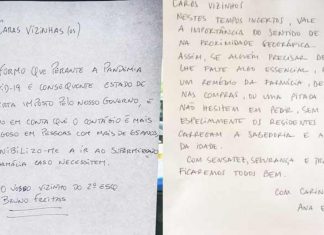 CAROS VIZINHOS (AS)
FORMO QUE PERANTE A PANDEMIA
ID-19 E CONSEQUENTE ESTADO DE
RTA IMPOSTO PELO NOSSO GOVERNO, E
DO EM CONTA QUE O CONTÁGIO É MAIS
GOSO EM PESSOAS COM MAIS DE 65 ANOS
NIBILIZO-ME A IR AO SUPERMERCADO
CASO NECESSITEM.
O VOSSO VIZINHO DO 2º ESQ.
BRUNO FREITAS
CAROS VIZINHOS
NESTES TEMPOS INCERTOS, VALE
A IMPORTÂNCIA DO SENTIDO DE
NA PROXIMIDADE GEOGRÁFICA.
ASSIM, SE ALGUÉM PRECISAR DE
LHE FALTE ALGO ESSENCIAL,
UM REMÉDIO DA FARMÁCIA,
NAS COMPRAS, OU UMA PITADA
NÃO HESITEM EM PEDIR, SEM
ESPECIALMENTE OS RESIDENTES
CARREGAM A SABEDORIA E A
DA IDADE.
COM SENSATEZ, SEGURANÇA E
FICAREMOS TODOS BEM.
COM CARIN
ANA